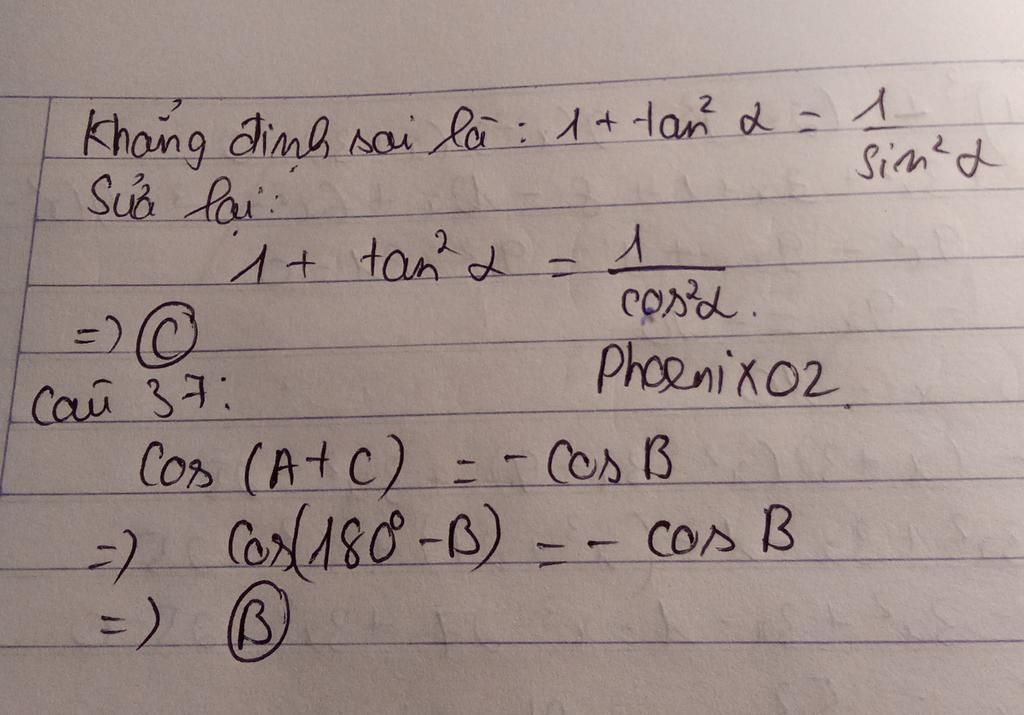 Khẳng định sai là: 1 + tan² α = 1/sin² α
Sửa lại:
1 + tan² α = 1/cos²α.
=> C
Phoenix02.
Câu 37:
Cos (A+C) = - Cos B
=> Cos(180° - B) = - cos B
=> B